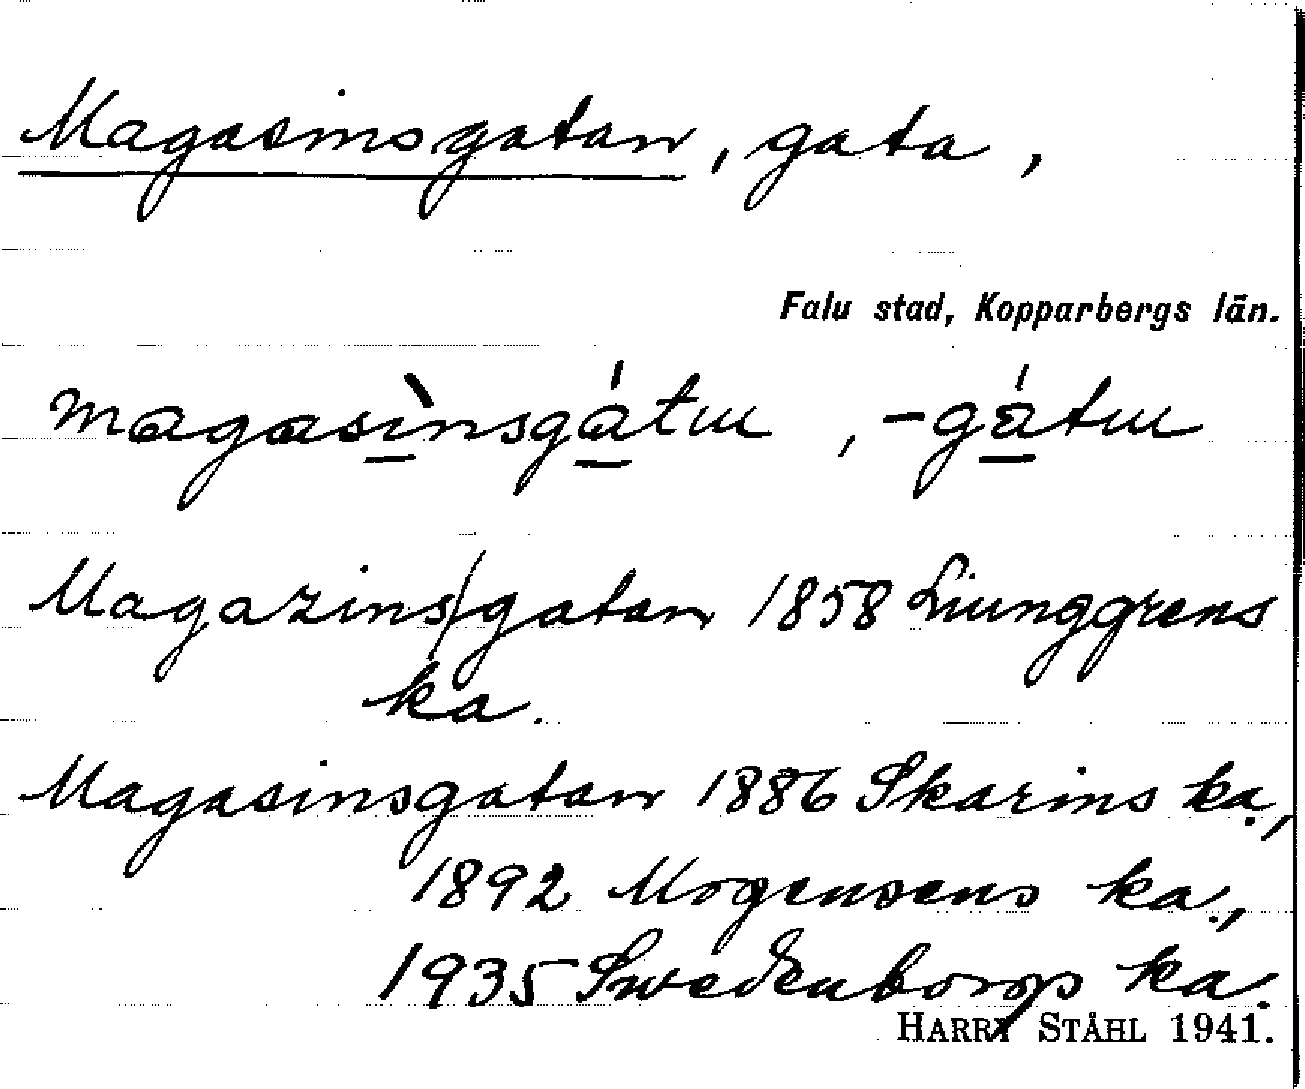 Magasinsgatan, gata,
Falu stad, Kopparbergs län.
magasì̱nsgá̱tɯ, -gá̱tɯ
Magazins/gatan 1858 Liunggrens
ka.
Magasinsgatan 1886 Skarins ka.,
1892 Mogensens ka.,
1935 Swedenborgs ka.
HARRY STÅHL 1941.